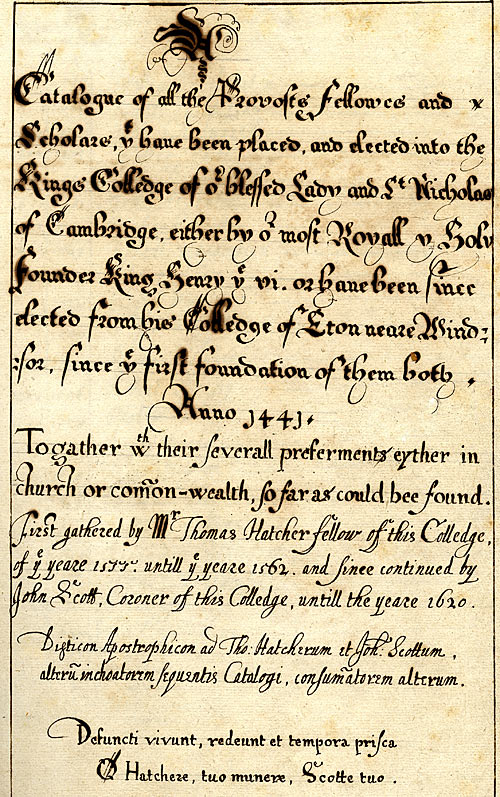 A
Catalogue of all the Provosts Fellowes and
Scholars, yͭ have been placed, and elected into the
Kings Colledge of oʳ blessed Lady and Sᵗ Nicholas
of Cambridge, either by oʳ most Royall & Holy
founder King Henry yᵉ vi. or have been since
elected from his Colledge of Eton neare Wind=
=sor, since yᵉ first foundation of them both.
Anno 1441.
Togather wᵗʰ their severall preferments eyther in
church or com̃on-wealth, so far as could bee found.
First gathered by Mʳ Thomas Hatcher fellow of this Colledge,
of yᵉ yeare 1555. untill yᵉ yeare 1562. and since continued by
John Scott, Coroner of this Colledge, untill the yeare 1620.
Disticon Apostrophicon ad Tho: Hatcherum et Joh: Scottum,
alterū inchoatorem sequentis Catalogi, consum̃atorem alterum.
Defuncti vivunt, redeunt et tempora prisca
O Hatchere, tuo munere, Scotte tuo.